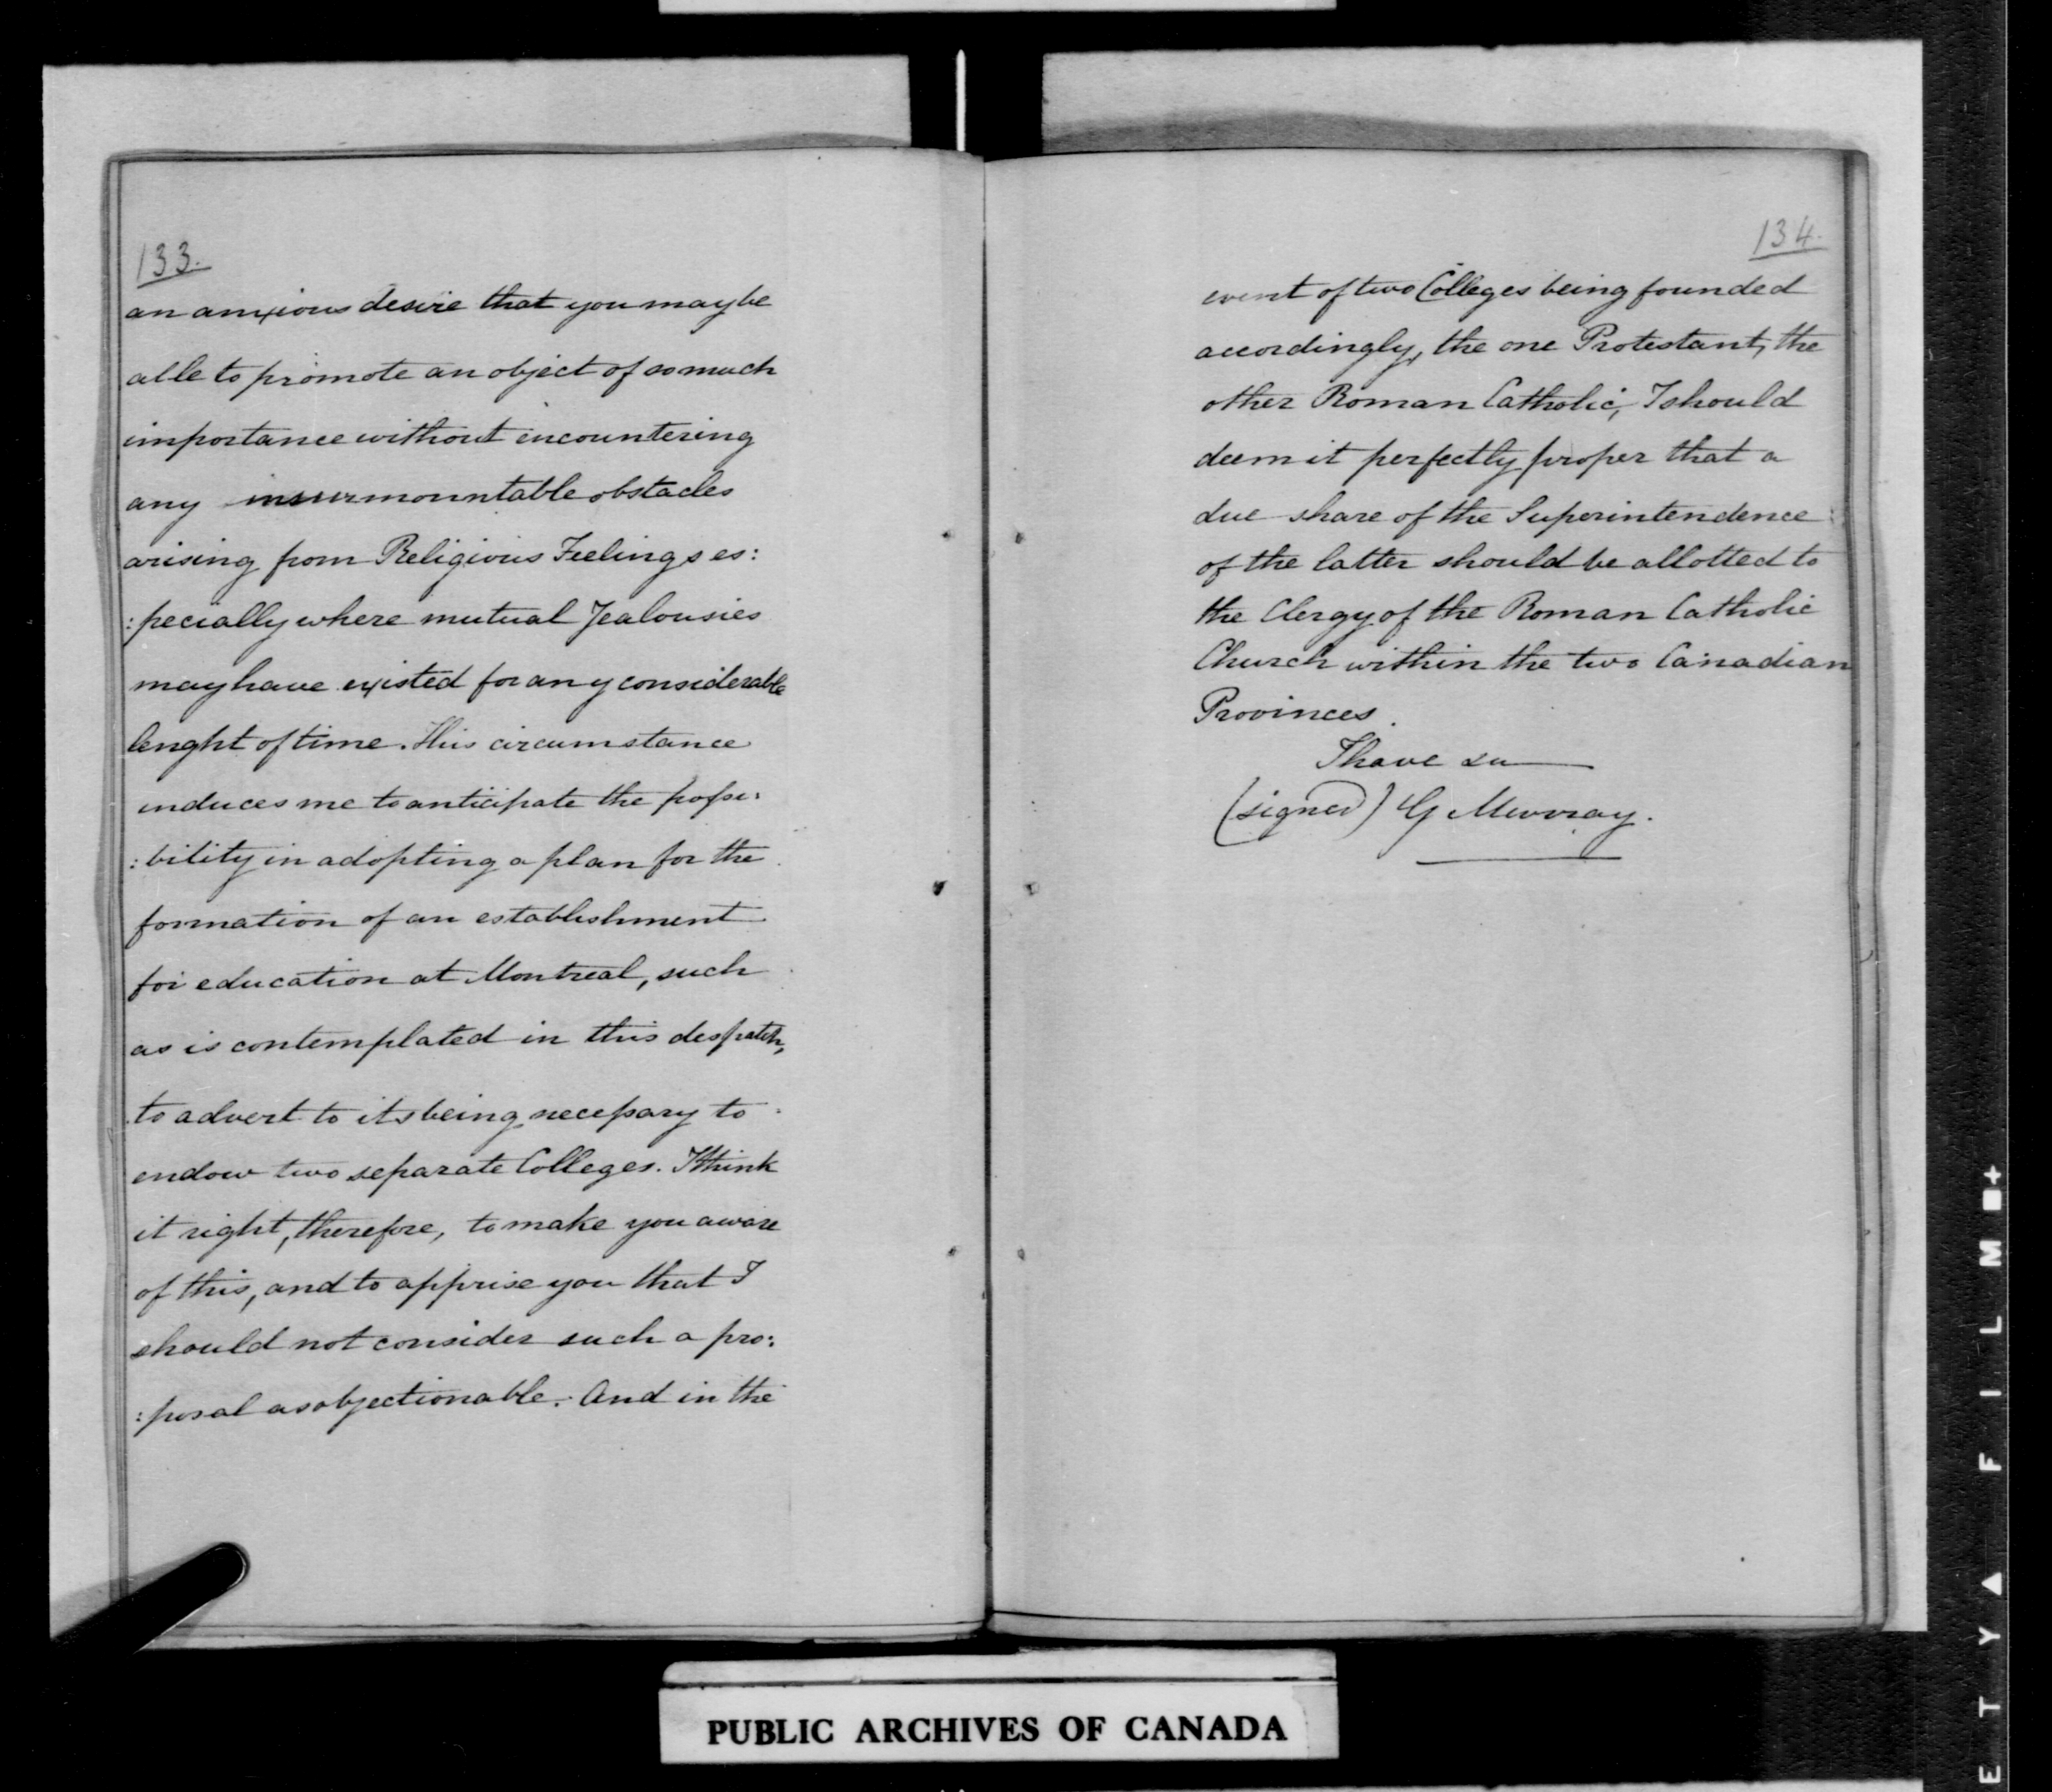 133.
an anxious desire that you may be
able to promote an object of so much
importance without encountering
any insurmountable obstacles
arising from Religious Feelings es:
:pecially where mutual Jealousies
may have existed for any considerable
lenght of time. This circumstance
induces me to anticipate the possi:
:bility in adopting a plan for the
formation of an establishment
for education at Montreal, such
as is contemplated in this despatch,
to advert to its being necessary to
endow two separate Colleges. I think
it right, therefore, to make you aware
of this, and to apprise you that I
should not consider such a pro:
:posal as objectionable. And in the
134.
event of two Colleges being founded
accordingly, the one Protestant, the
other Roman Catholic, I should
deem it perfectly proper that a
due share of the Superintendence
of the latter should be allotted to
the Clergy of the Roman Catholic
Church within the two Canadian
Provinces.
I have &a
(signed) G Murray.
PUBLIC ARCHIVES OF CANADA
E T Y ▲ F I L M ■+